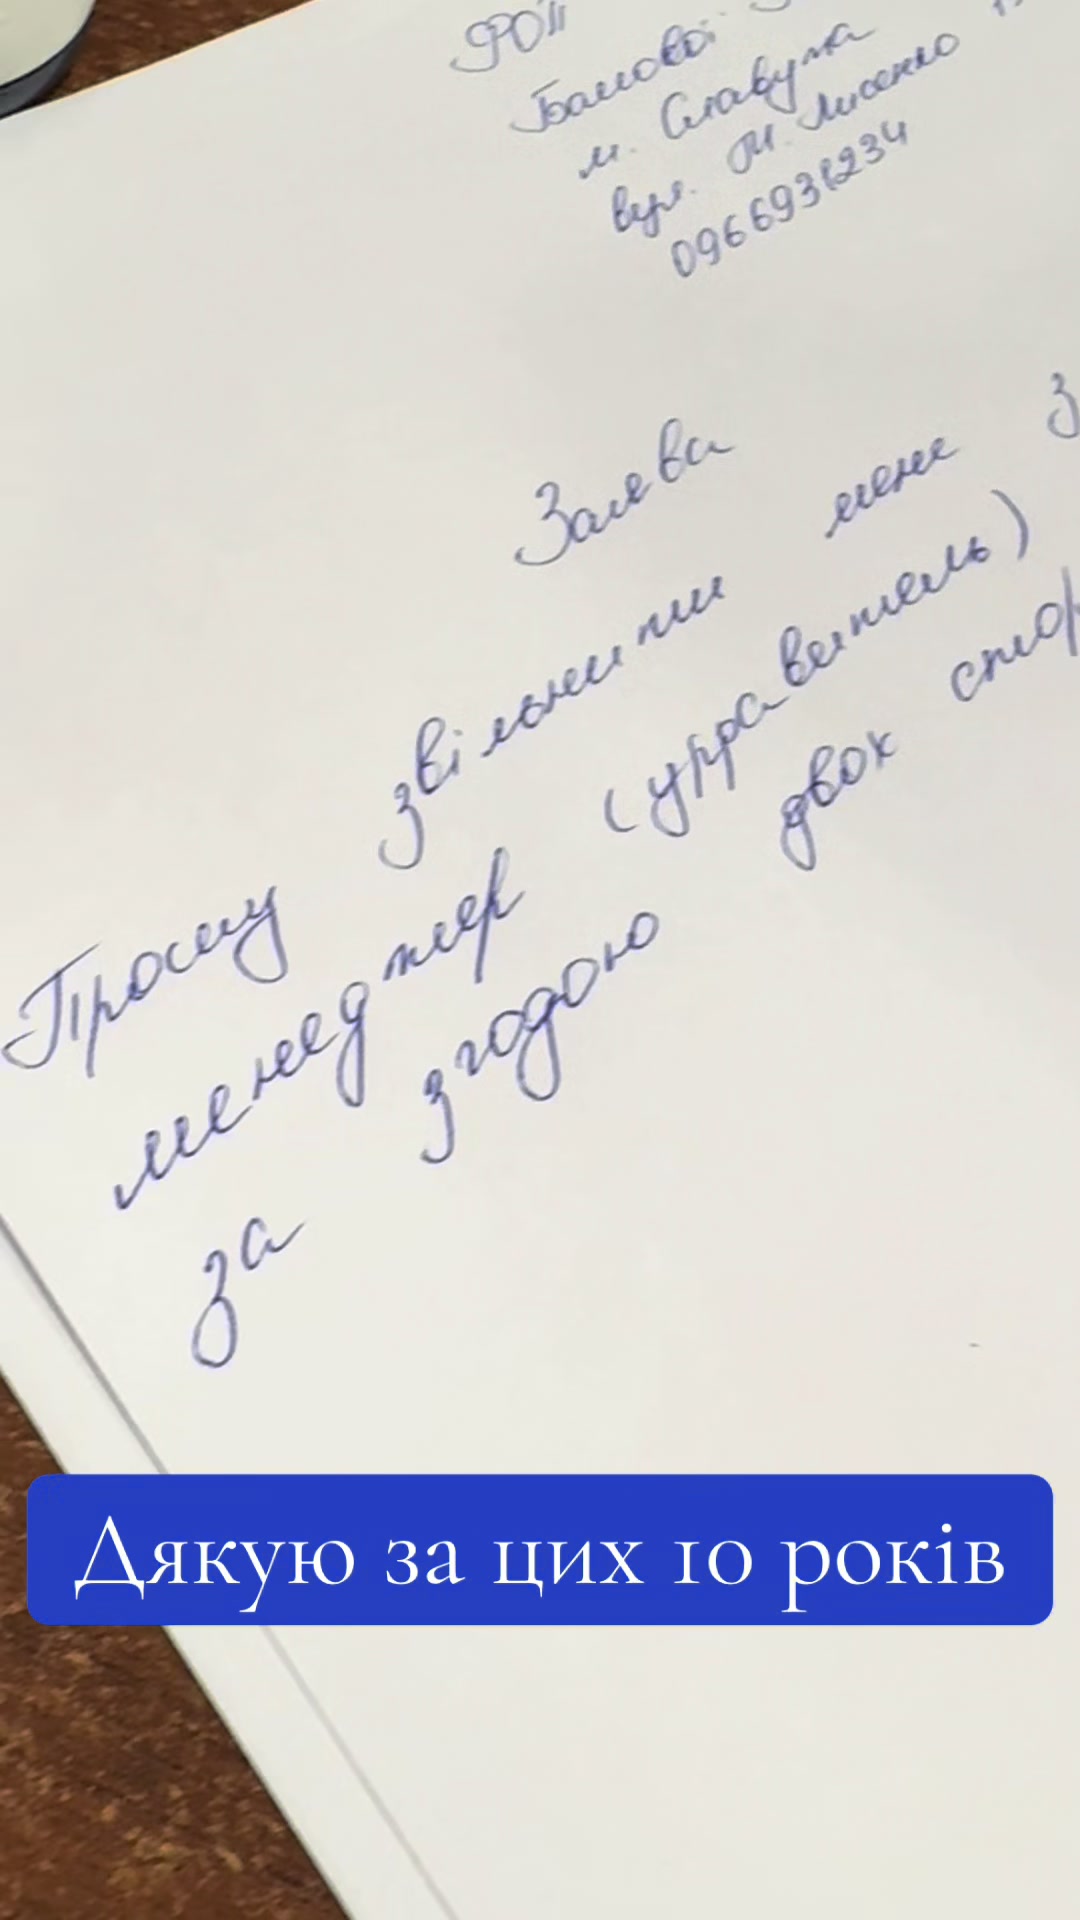 ФОП
м. Славута
вул. М. Лисенко
0966931234
Заява
Прошу звільнити мене з
менеджер (управитель)
за згодою двох стор
Дякую за цих 10 років